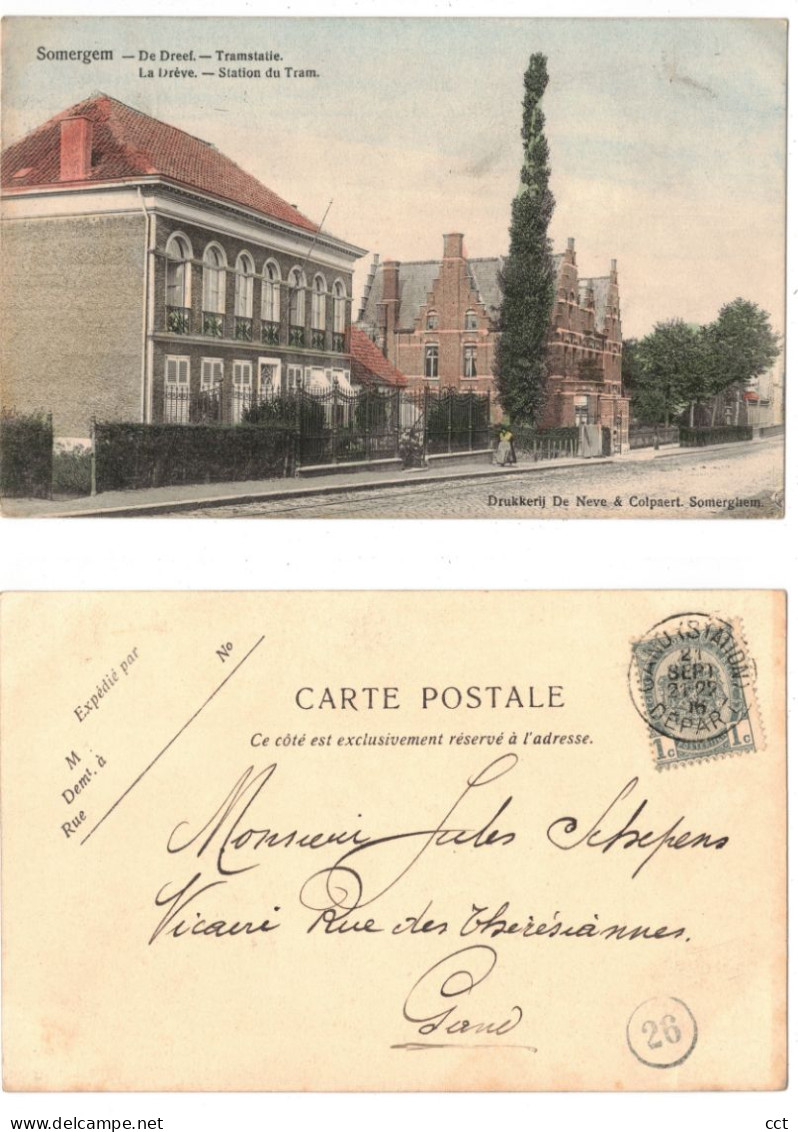 Somergem — De Dreef. — Tramstatie.
La Drève. — Station du Tram.
Drukkerij De Neve & Colpaert. Somerghem.
Expédié par
No
M
Demt. à
Rue
CARTE POSTALE
Ce côté est exclusivement réservé à l'adresse.
GAND (STATION)
21
SEPT
DÉPART
1c 1c
Monsieur Jules Schepens
Vicaire Rue des Thérésiánnes.
Gand
26
cct